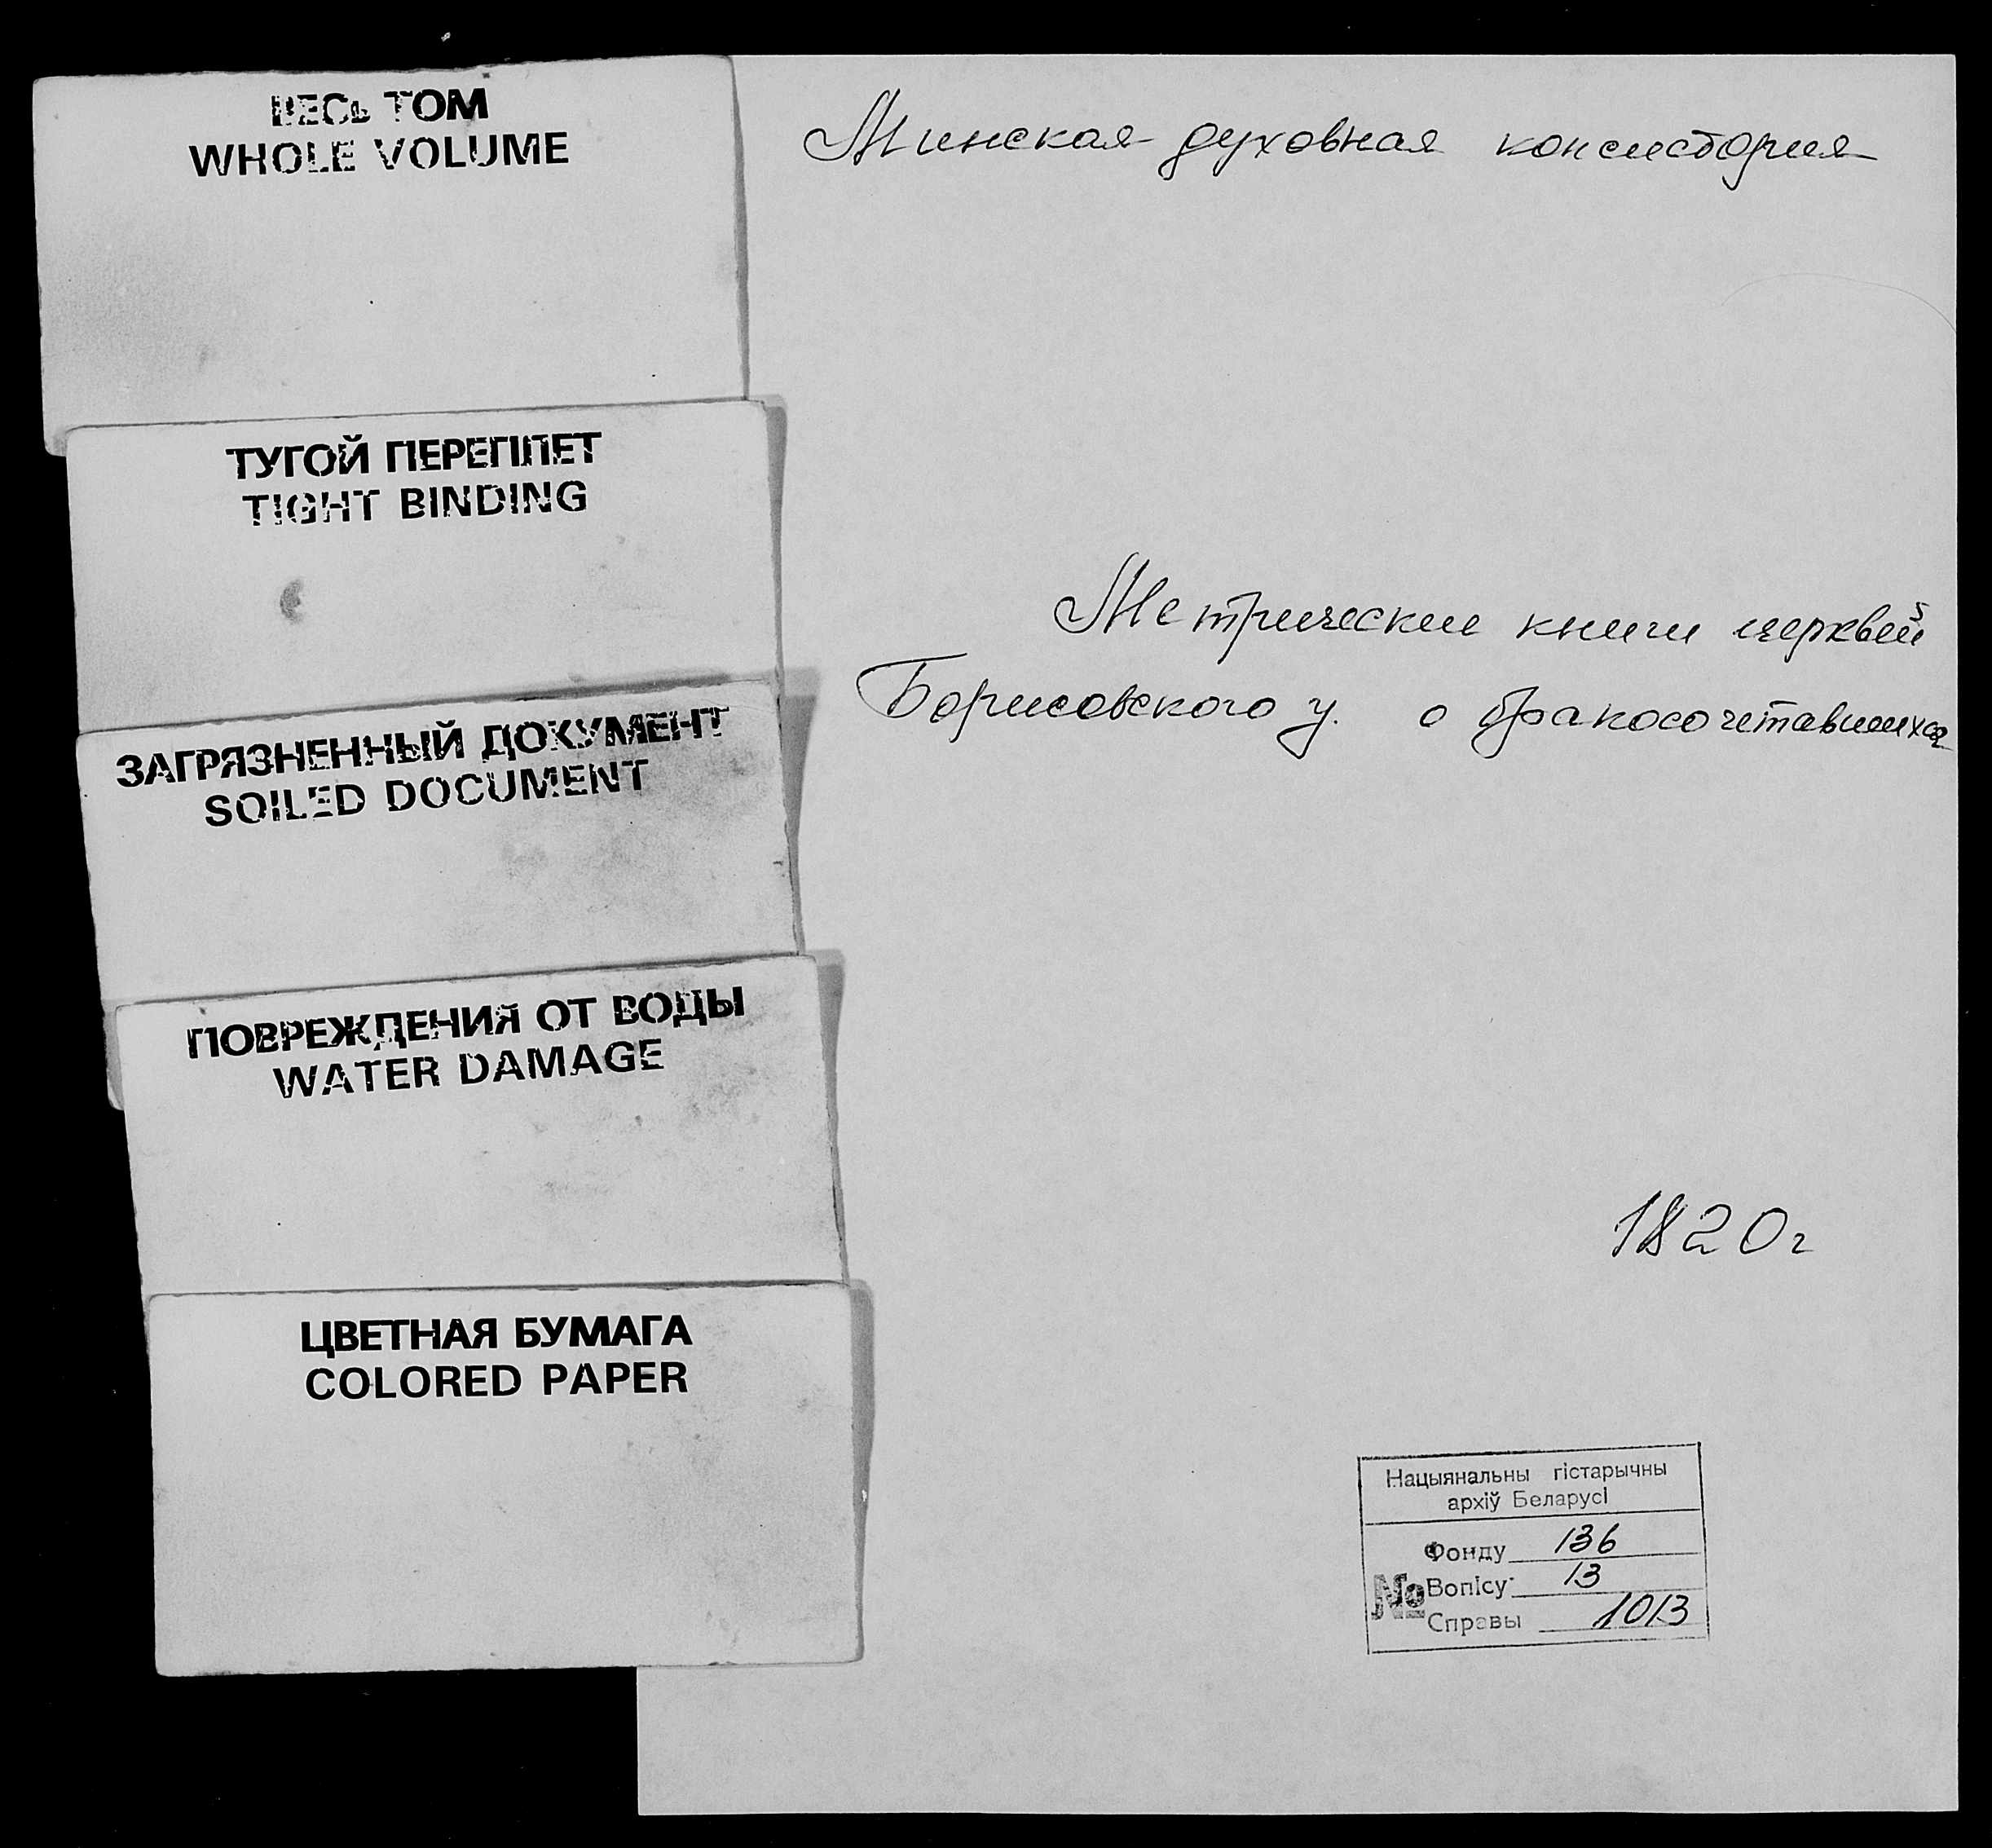 ВЕСЬ ТОМ
WHOLE VOLUME
ТУГОЙ ПЕРЕПЛЕТ
TIGHT BINDING
ЗАГРЯЗНЕННЫЙ ДОКУМЕНТ
SOILED DOCUMENT
ПОВРЕЖДЕНИЯ ОТ ВОДЫ
WATER DAMAGE
ЦВЕТНАЯ БУМАГА
COLORED PAPER
Минская духовная консистория
Метрические книги церквей
Борисовского у. о бракосочетавшихся
1820 г
Нацыянальны гістарычны
архіў Беларусі
Фонду 136
№ Вопісу 13
Справы 1013